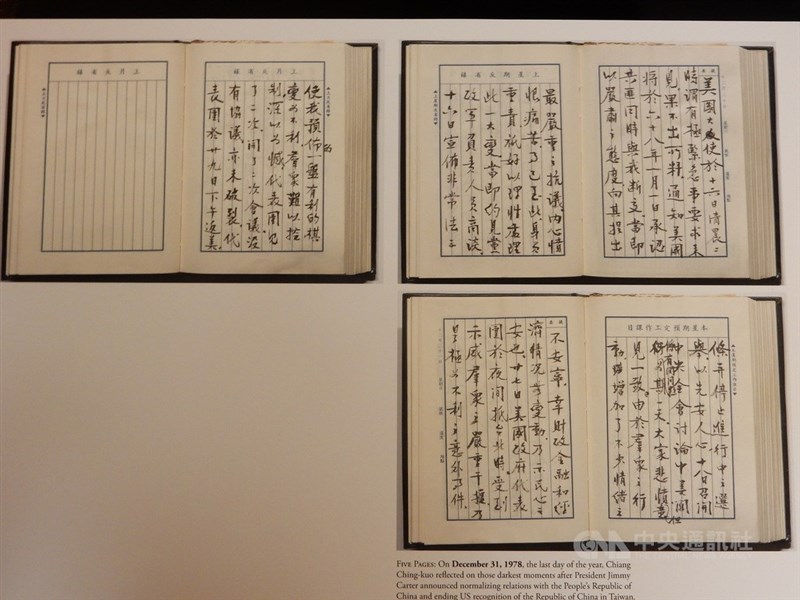 美國大使於十六日清晨二
時謂有極緊急事要求來
見果不出所料通知美國
將於六十八年一月一日承認
共匪同時與我斷交當即
以嚴肅之態度向其提出
上星期反省錄
最嚴重之抗議內心憤
恨痛苦乃已至此身負
重責祇好以理性處理
此一大變當即約見黨
政軍負責人員商談
十六日宣佈非常法之
本星期預定工作課目
條並停止進行中之選
舉以先安人心十八日召開
中央全會討論中美關係
一天大家悲憤意
見一致由於羣眾之行
動雖增加了不少情緒上
不安寧幸財政金融和經
濟情況無變動乃示民心之
安也廿七日美國政府代表
團於夜間抵台北時受到
示威羣眾之嚴重干擾乃
是極為不利之意外事件
上月反省錄
使我預佈一盤有利的棋
變為不利羣眾難以控
制深以為憾代表團
了二次開了二次會議沒
有協議亦未破裂代
表團於廿九日下午返美
上月反省錄
中央通訊社
FIVE PAGES: On December 31, 1978, the last day of the year, Chiang
Ching-kuo reflected on those darkest moments after President Jimmy
Carter announced normalizing relations with the People's Republic of
China and ending US recognition of the Republic of China in Taiwan.